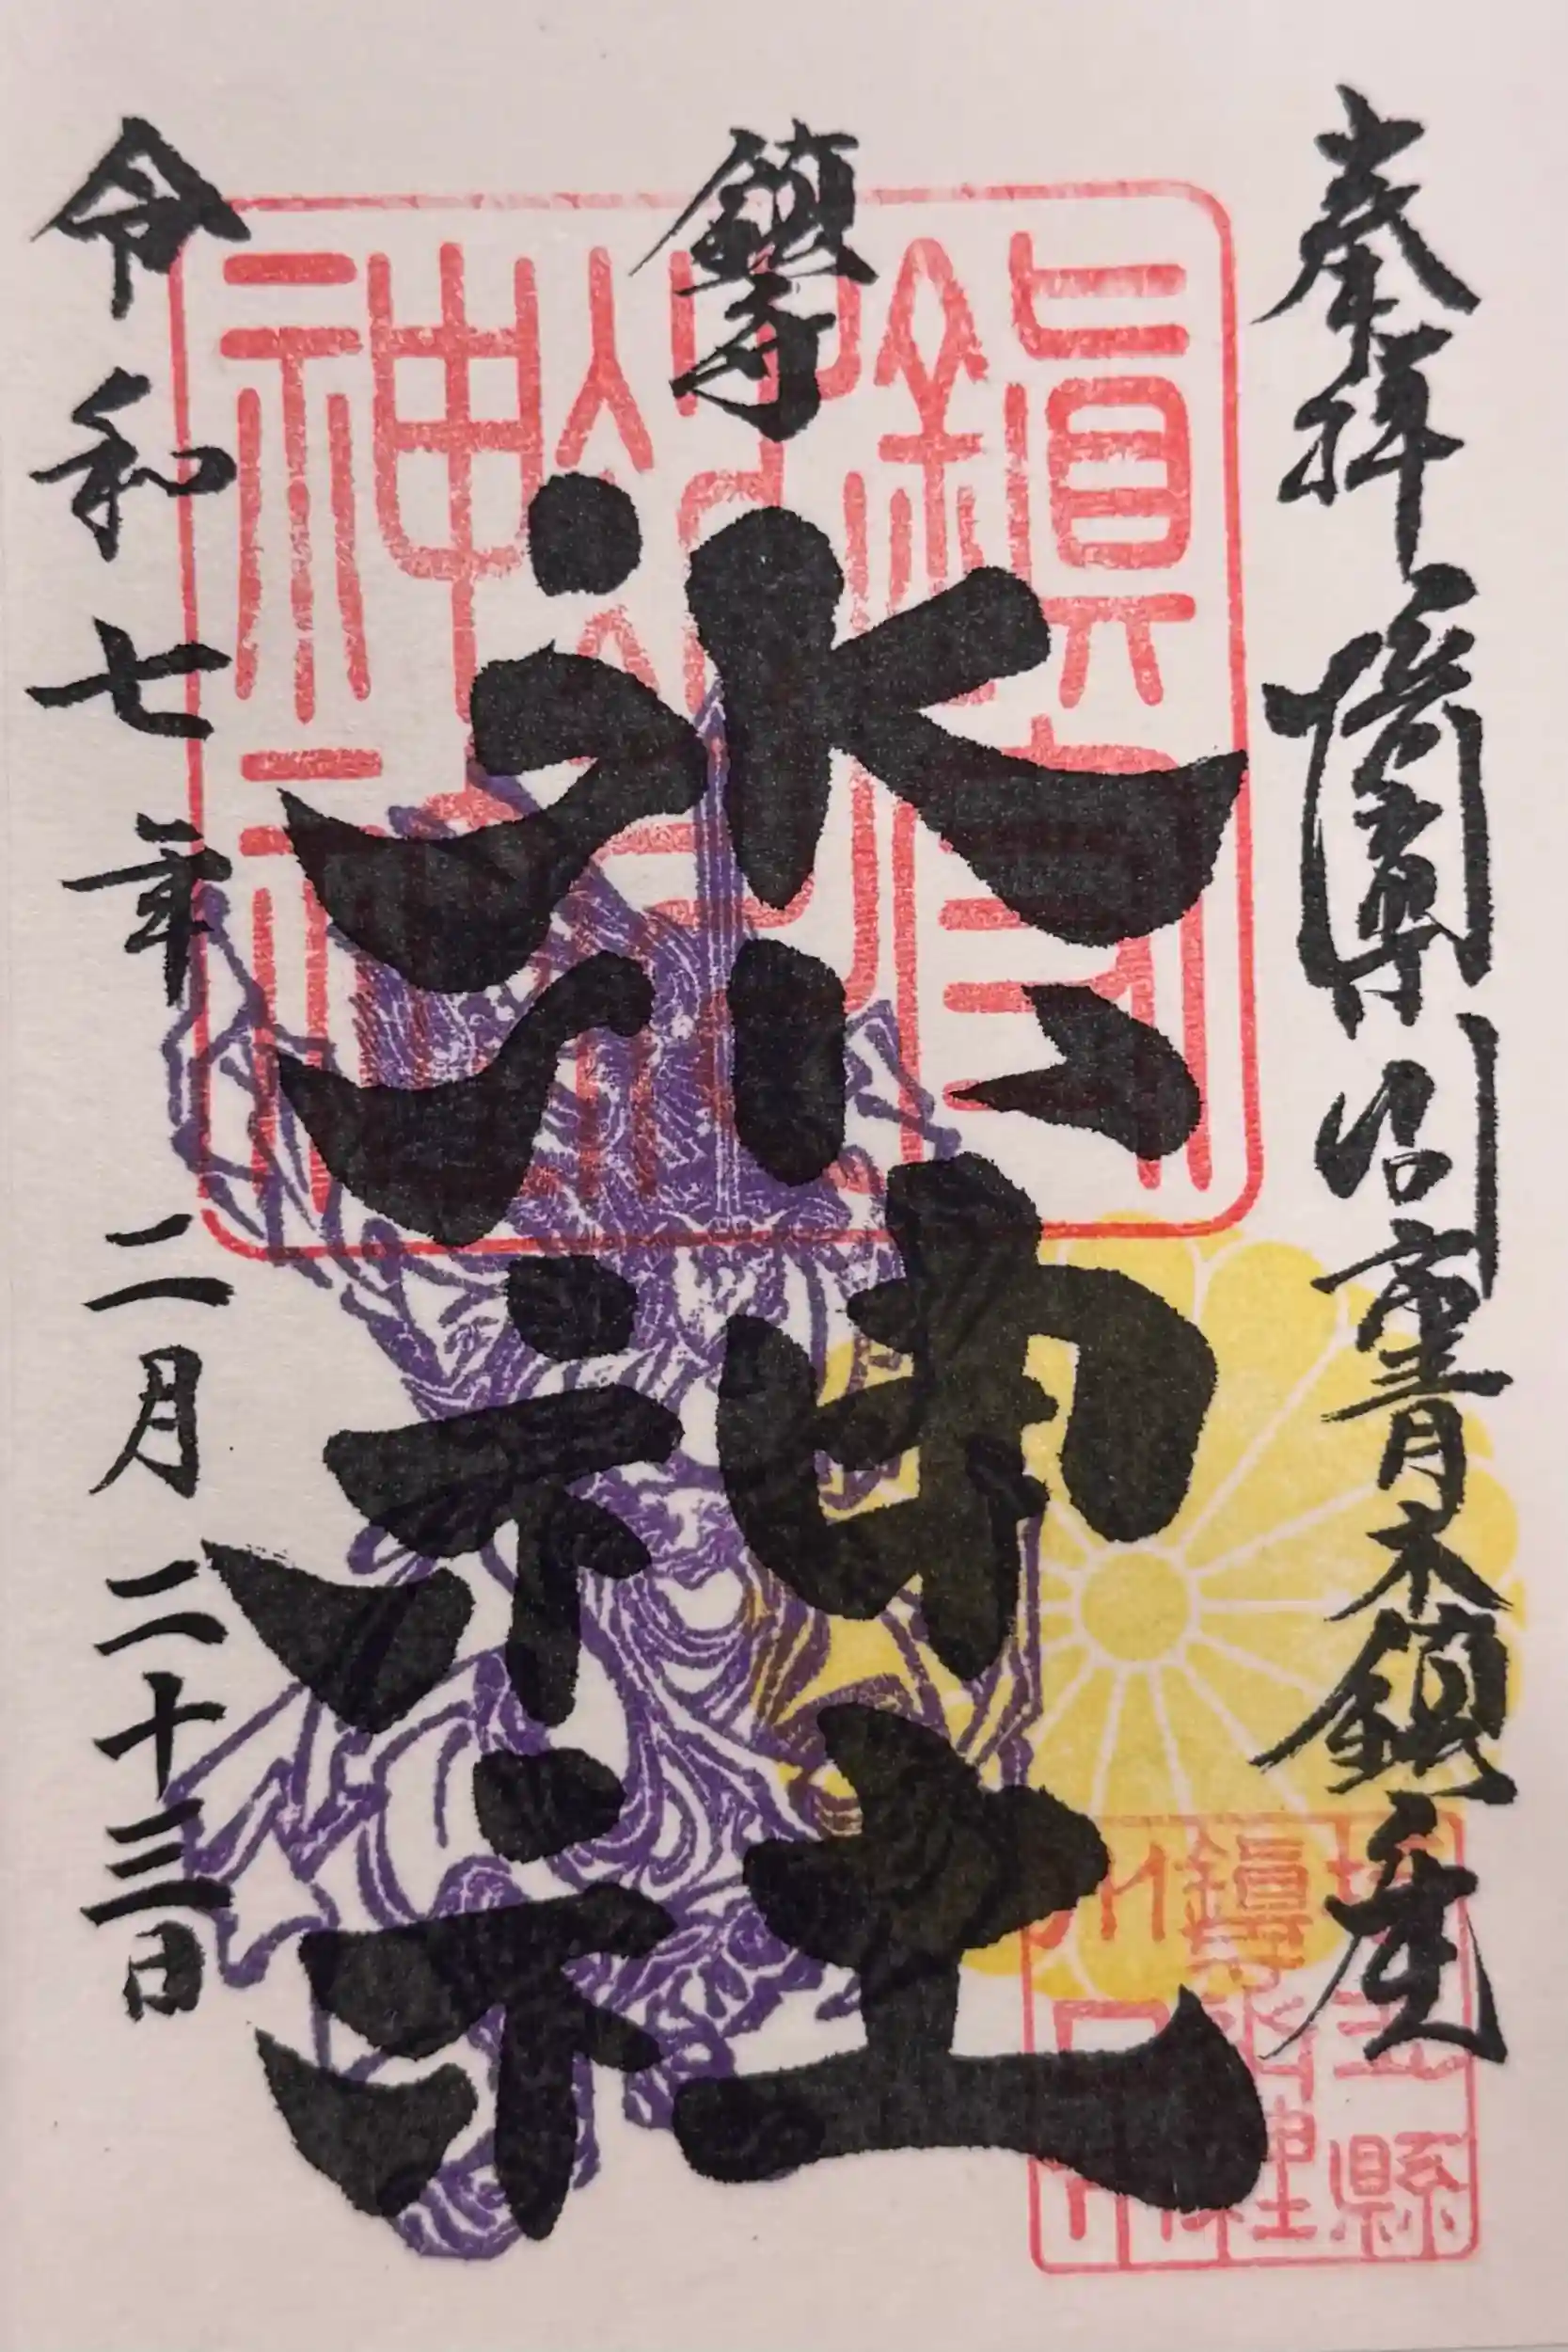 奉拝 武蔵国 川口宿青木鎮座
鎮守
氷川神社
令和七年 二月 二十三日
鎮守氷川神社
埼玉縣
鎮守氷川神社
川口